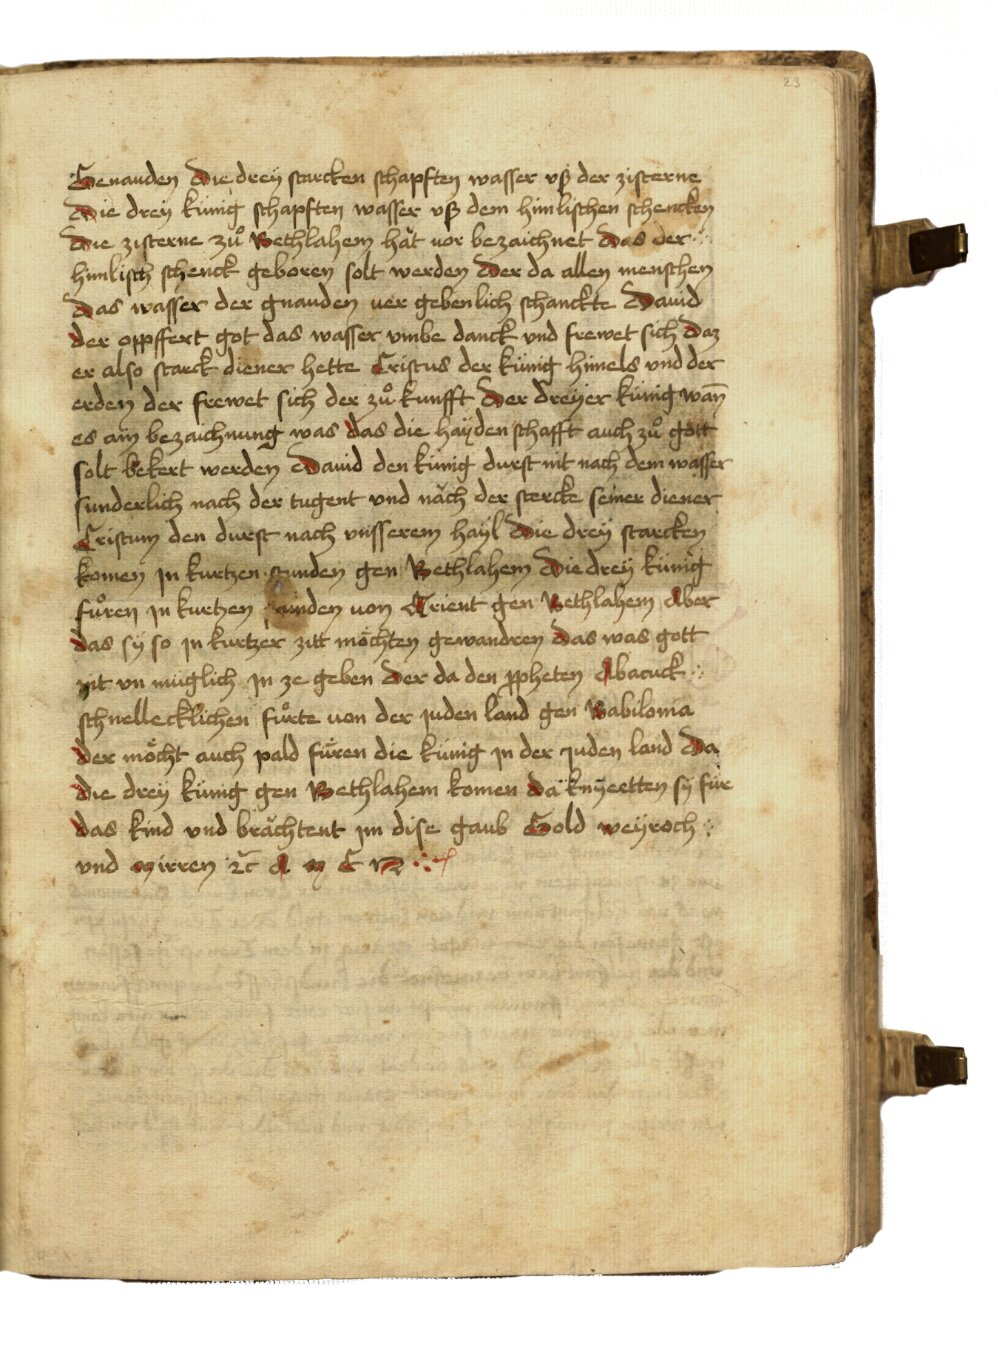 23
Genanden Die drey starcken schapften wasser vß der zisterne
Die drey künig schapften wasser vß dem himlischen schencken
Die zisterne zů Bethlahem hăt vor bezaichnet Das der
himlisch schenck geboren solt werden Der da allen menschen
Das wasser der gnauden uer gebenlich schanckte Dauid
der oppffert got das wasser vmbe danck vnd frewet sich Daz
er also starck diener hette Cristus der künig himels vnd der
erden der frewet sich der zů kunfft Der dreyer künig wañ
es ain bezaichnung was das die haydenschafft auch zů gott
solt bekert werden Dauid den künig durst nit nach dem wasser
sunderlich nach der tugent vnd năch der stercke seiner diener
Cristum den durst nach vnsserem hayl Die drey starcken
komen jn kurtzen stunden gen Bethlahem Die drey künig
fůren jn kurtzen von Orient gen Bethlahem Aber
das sÿ so jn kurtzer zitt möchten gewandren Das was gott
nit vn müglich jn ze geben Der da den ppheten Abacuck
schnellecklichen fůrte von der juden land gen Babilonia
der möcht auch pald füren die künig jn der juden land Da
die drey künig gen Bethlahem komen dă knÿeetten sÿ für
das kind vnd brăchtent jm dise gaub Gold weÿroch
vnd mirren ꝛc̄ A M E N